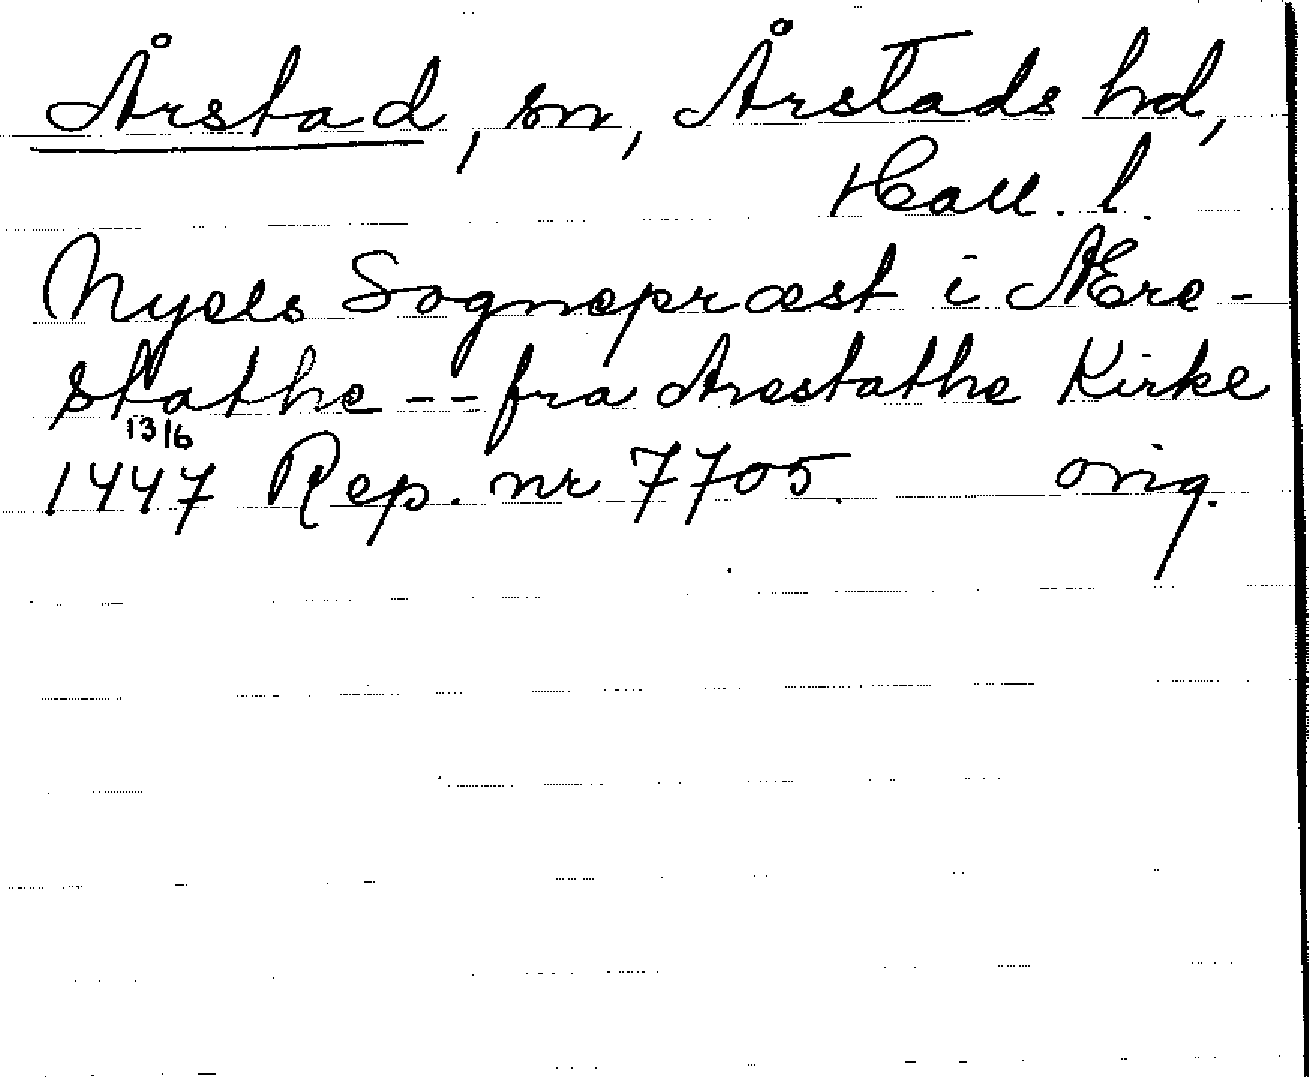 Årstad, sn, Årstads hd,
Hall. l.
Nyels Sognepræst i Ære-
stathe -- fra Arestathe Kirke
13/6
1447 Rep. nr 7705. orig.